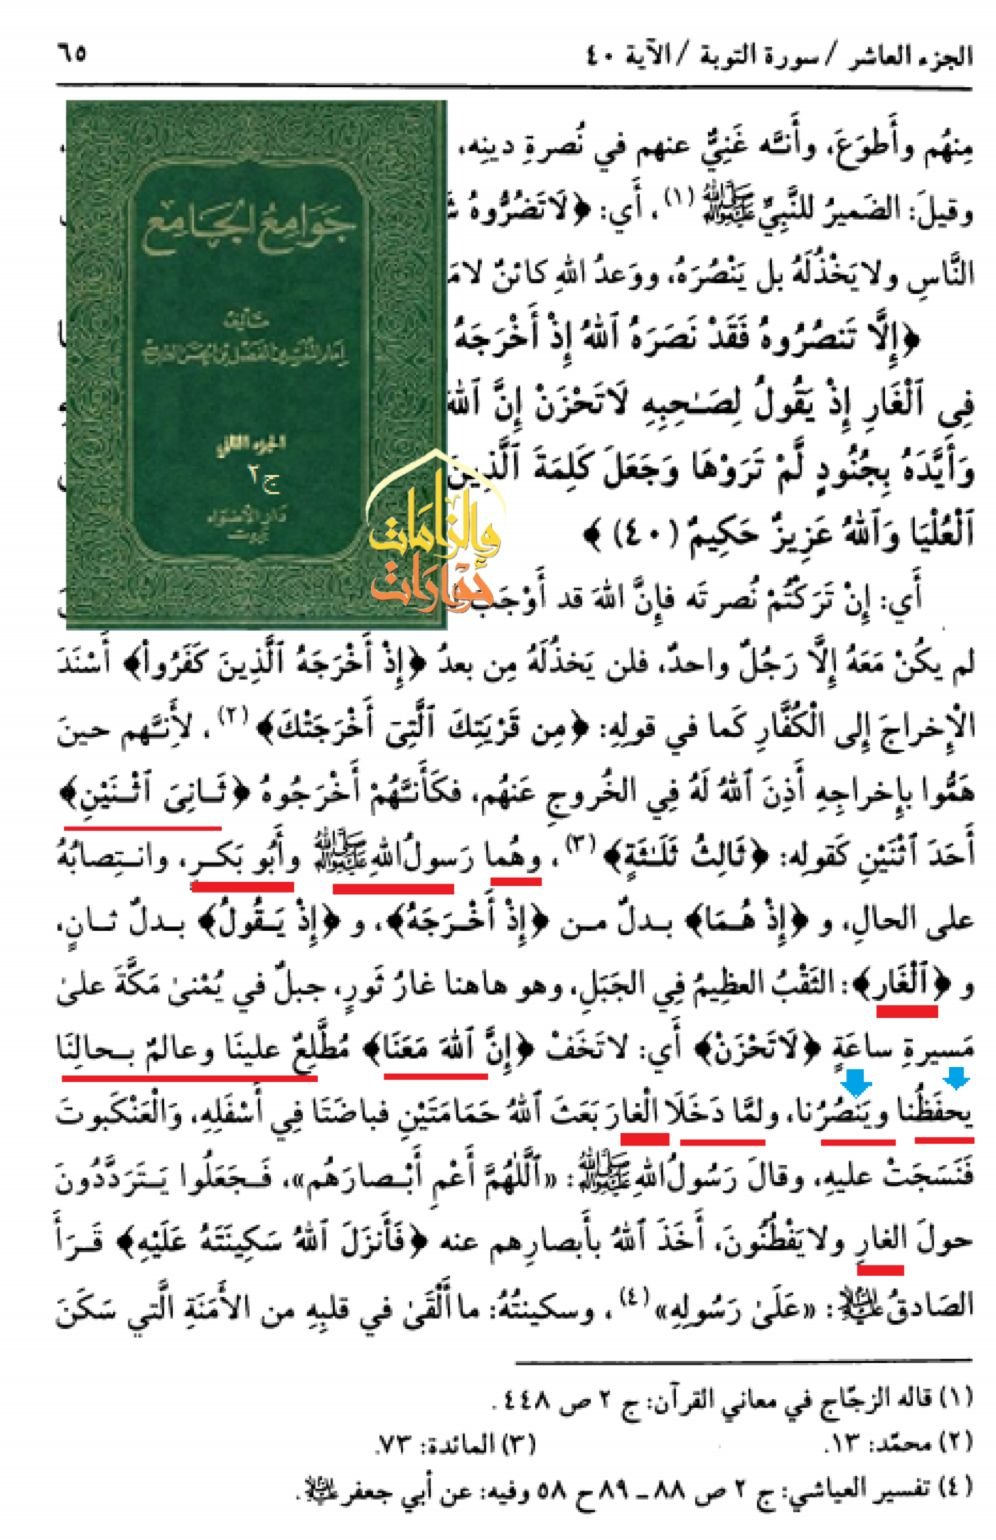 الجزء العاشر / سورة التوبة / الآية ٤٠ ٦٥
مِنهُم وأَطوَعَ، وأَنـَّه غَنِيٌّ عنهم في نُصرةِ دينِه،
وقيلَ: الضَميرُ للنَّبِيِّ ﷺ (١)، أَي: ﴿لَاتَضُرُّوهُ
النَّاسِ ولا يَخْذُلَهُ بل يَنْصُرَهُ، ووَعدُ اللهِ كائنٌ لامَ
﴿إِلَّا تَنصُرُوهُ فَقَدْ نَصَرَهُ ٱللهُ إِذْ أَخْرَجَهُ
فِي ٱلْغَارِ إِذْ يَقُولُ لِصَـٰحِبِهِ لَاتَحْزَنْ إِنَّ ٱللهَ
وَأَيَّدَهُ بِجُنُودٍ لَّمْ تَرَوْهَا وَجَعَلَ كَلِمَةَ ٱلَّذِينَ
ٱلْعُلْيَا وَٱللهُ عَزِيزٌ حَكِيمٌ (٤٠)﴾
أَي: إنْ تَرَكْتُمْ نُصرتَه فإنَّ اللهَ قد أَوْجَبَ
لم يكُنْ مَعَهُ إلَّا رَجُلٌ واحدٌ، فلن يَخذُلَهُ مِن بعدُ ﴿إِذْ أَخْرَجَهُ ٱلَّذِينَ كَفَرُواْ﴾ أَسْنَدَ
الْإِخراجَ إلى الْكُفَّارِ كَما في قولِهِ: ﴿مِن قَرْيَتِكَ ٱلَّتِىٓ أَخْرَجَتْكَ﴾ (٢)، لأَِنـَّهم حينَ
هَمُّوا بإخراجِهِ أَذِنَ ٱللهُ لَهُ فِي الخُروجِ عَنهُم، فكَأَنـَّهُمْ أَخْرَجُوهُ ﴿ثَـانِىَ ٱثْـنَيْنِ﴾
أَحَدَ ٱثْنَيْنِ كَقولِه: ﴿ثَالِثُ ثَلَـٰثَةٍ﴾ (٣)، وهُما رَسولُ اللهِ ﷺ وأَبُو بَكـرٍ، وانـتِصابُهُ
على الحالِ، و ﴿إِذْ هُمَا﴾ بـدلٌ مـن ﴿إِذْ أَخْـرَجَهُ﴾، و ﴿إِذْ يَـقُولُ﴾ بـدلٌ ثـانٍ،
و ﴿ٱلْغَارِ﴾: الثَقْبُ العظيمُ فِي الجَبَلِ، وهو هاهنا غارُ ثَورٍ، جبلٌ في يُمْنىٰ مَكَّةَ علىٰ
مَسيرةِ ساعَةٍ ﴿لَاتَحْزَنْ﴾ أَي: لا تَخَفْ ﴿إِنَّ ٱللهَ مَعَنَا﴾ مُطَّلِعٌ علينَا وعالمٌ بـحالِنَا
يحفَظُنا ويَنصُرُنا، ولمَّا دَخَلَا الْغارَ بَعَثَ ٱللهُ حَمَامَتَيْنِ فباضَتَا فِي أَسْفَلِهِ، وَالْعَنْكَبوتَ
فَنَسَجَتْ عليهِ، وقالَ رَسُولُ اللهِ ﷺ: «ٱلَّلهُمَّ أَعْمِ أَبْـصارَهُم»، فَـجَعَلُوا يَـتَرَدَّدُونَ
حولَ الغارِ ولا يَفْطُنُونَ، أَخَذَ ٱللهُ بأَبصارِهم عنه ﴿فَأَنزَلَ ٱللهُ سَكِينَتَهُ عَلَيْهِ﴾ قَـرَأَ
الصَادقُ عليه السلام: «عَلَىٰ رَسُولِهِ» (٤)، وسكينتُهُ: ما أَلْقَىٰ في قلبِهِ من الأَمَنَةِ الَّتي سَكَنَ
(١) قاله الزجّاج في معاني القرآن: ج ٢ ص ٤٤٨.
(٢) محمّد: ١٣. (٣) المائدة: ٧٣.
(٤) تفسير العياشي: ج ٢ ص ٨٨ ـ ٨٩ ح ٥٨ وفيه: عن أبي جعفر عليه السلام.
جَوَامِعُ الجَامِع
تأليف
الجزء الثاني
ج٢
دار الأضواء
بيروت
والزامات
حوارات